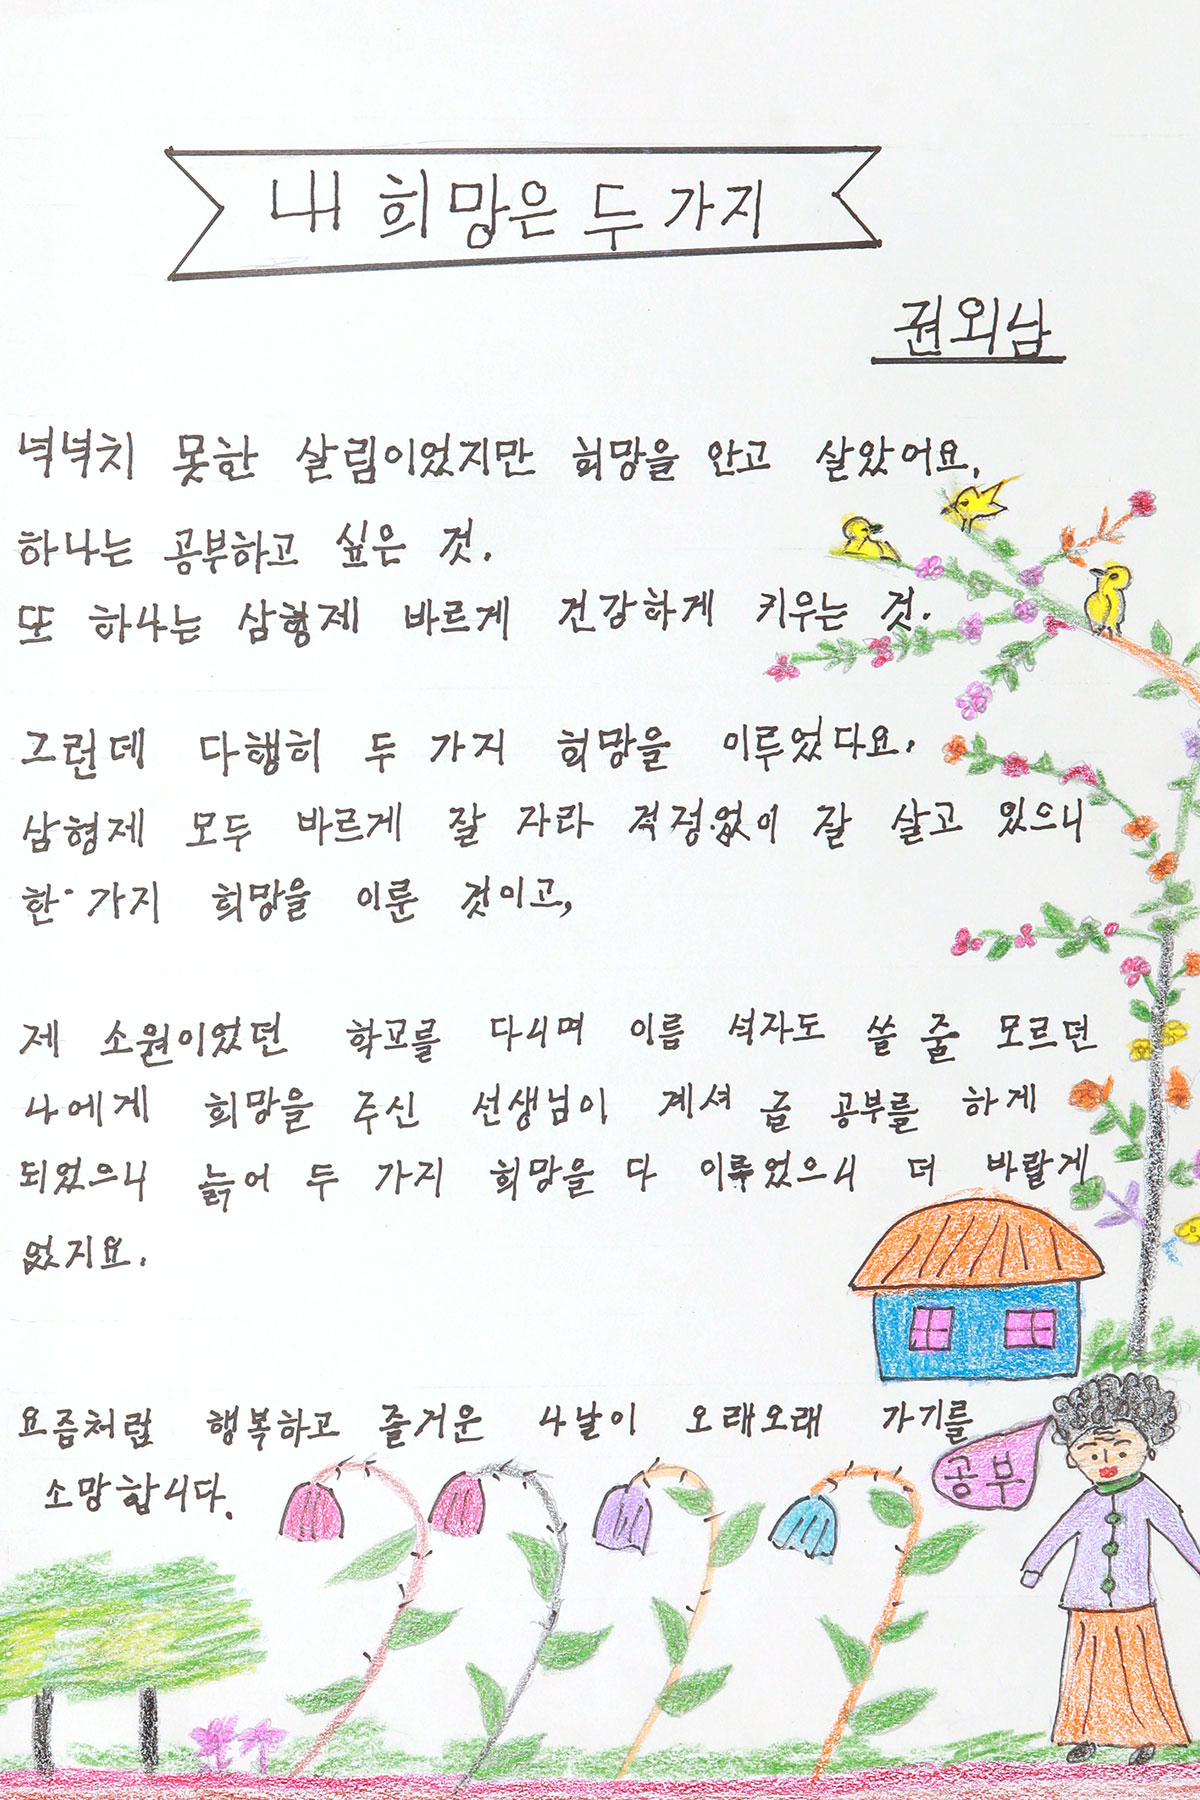 내 희망은 두 가지
권외남
녁녁치 못한 살림이었지만 희망을 안고 살았어요.
하나는 공부하고 싶은 것.
또 하나는 삼형제 바르게 건강하게 키우는 것.
그런데 다행히 두 가지 희망을 이루었다요.
삼형제 모두 바르게 잘 자라 걱정없이 잘 살고 있으니
한 가지 희망을 이룬 것이고,
제 소원이었던 학교를 다니며 이름 석자도 쓸 줄 모르던
나에게 희망을 주신 선생님이 계셔 글 공부를 하게
되었으니 늙어 두 가지 희망을 다 이루었으니 더 바랄게
없지요.
요즘처럼 행복하고 즐거운 나날이 오래오래 가기를
공부
소망합니다.